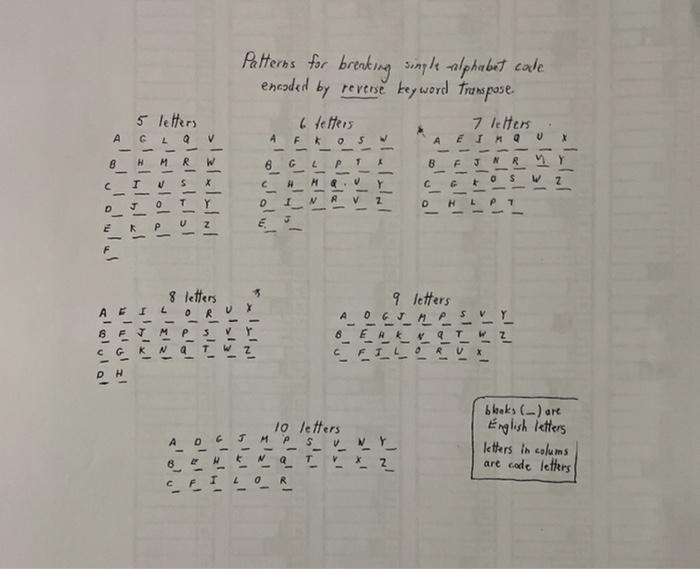 Patterns for breaking single-alphabet code
encoded by reverse keyword transpose.
5 letters
A G L Q V
B H M R W
C I N S X
D J O T Y
E K P U Z
F
6 letters
A F K O S W
B G L P T X
C H M Q U Y
D I N R V Z
E J
7 letters
A E I M Q U X
B F J N R V Y
C G K O S W Z
D H L P T
8 letters
A E I L O R U X
B F J M P S V Y
C G K N Q T W Z
D H
9 letters
A D G J M P S V Y
B E H K N Q T W Z
C F I L O R U X
10 letters
A D G J M P S U W Y
B E H K N Q T V X Z
C F I L O R
blanks (_) are
English letters
letters in colums
are code letters